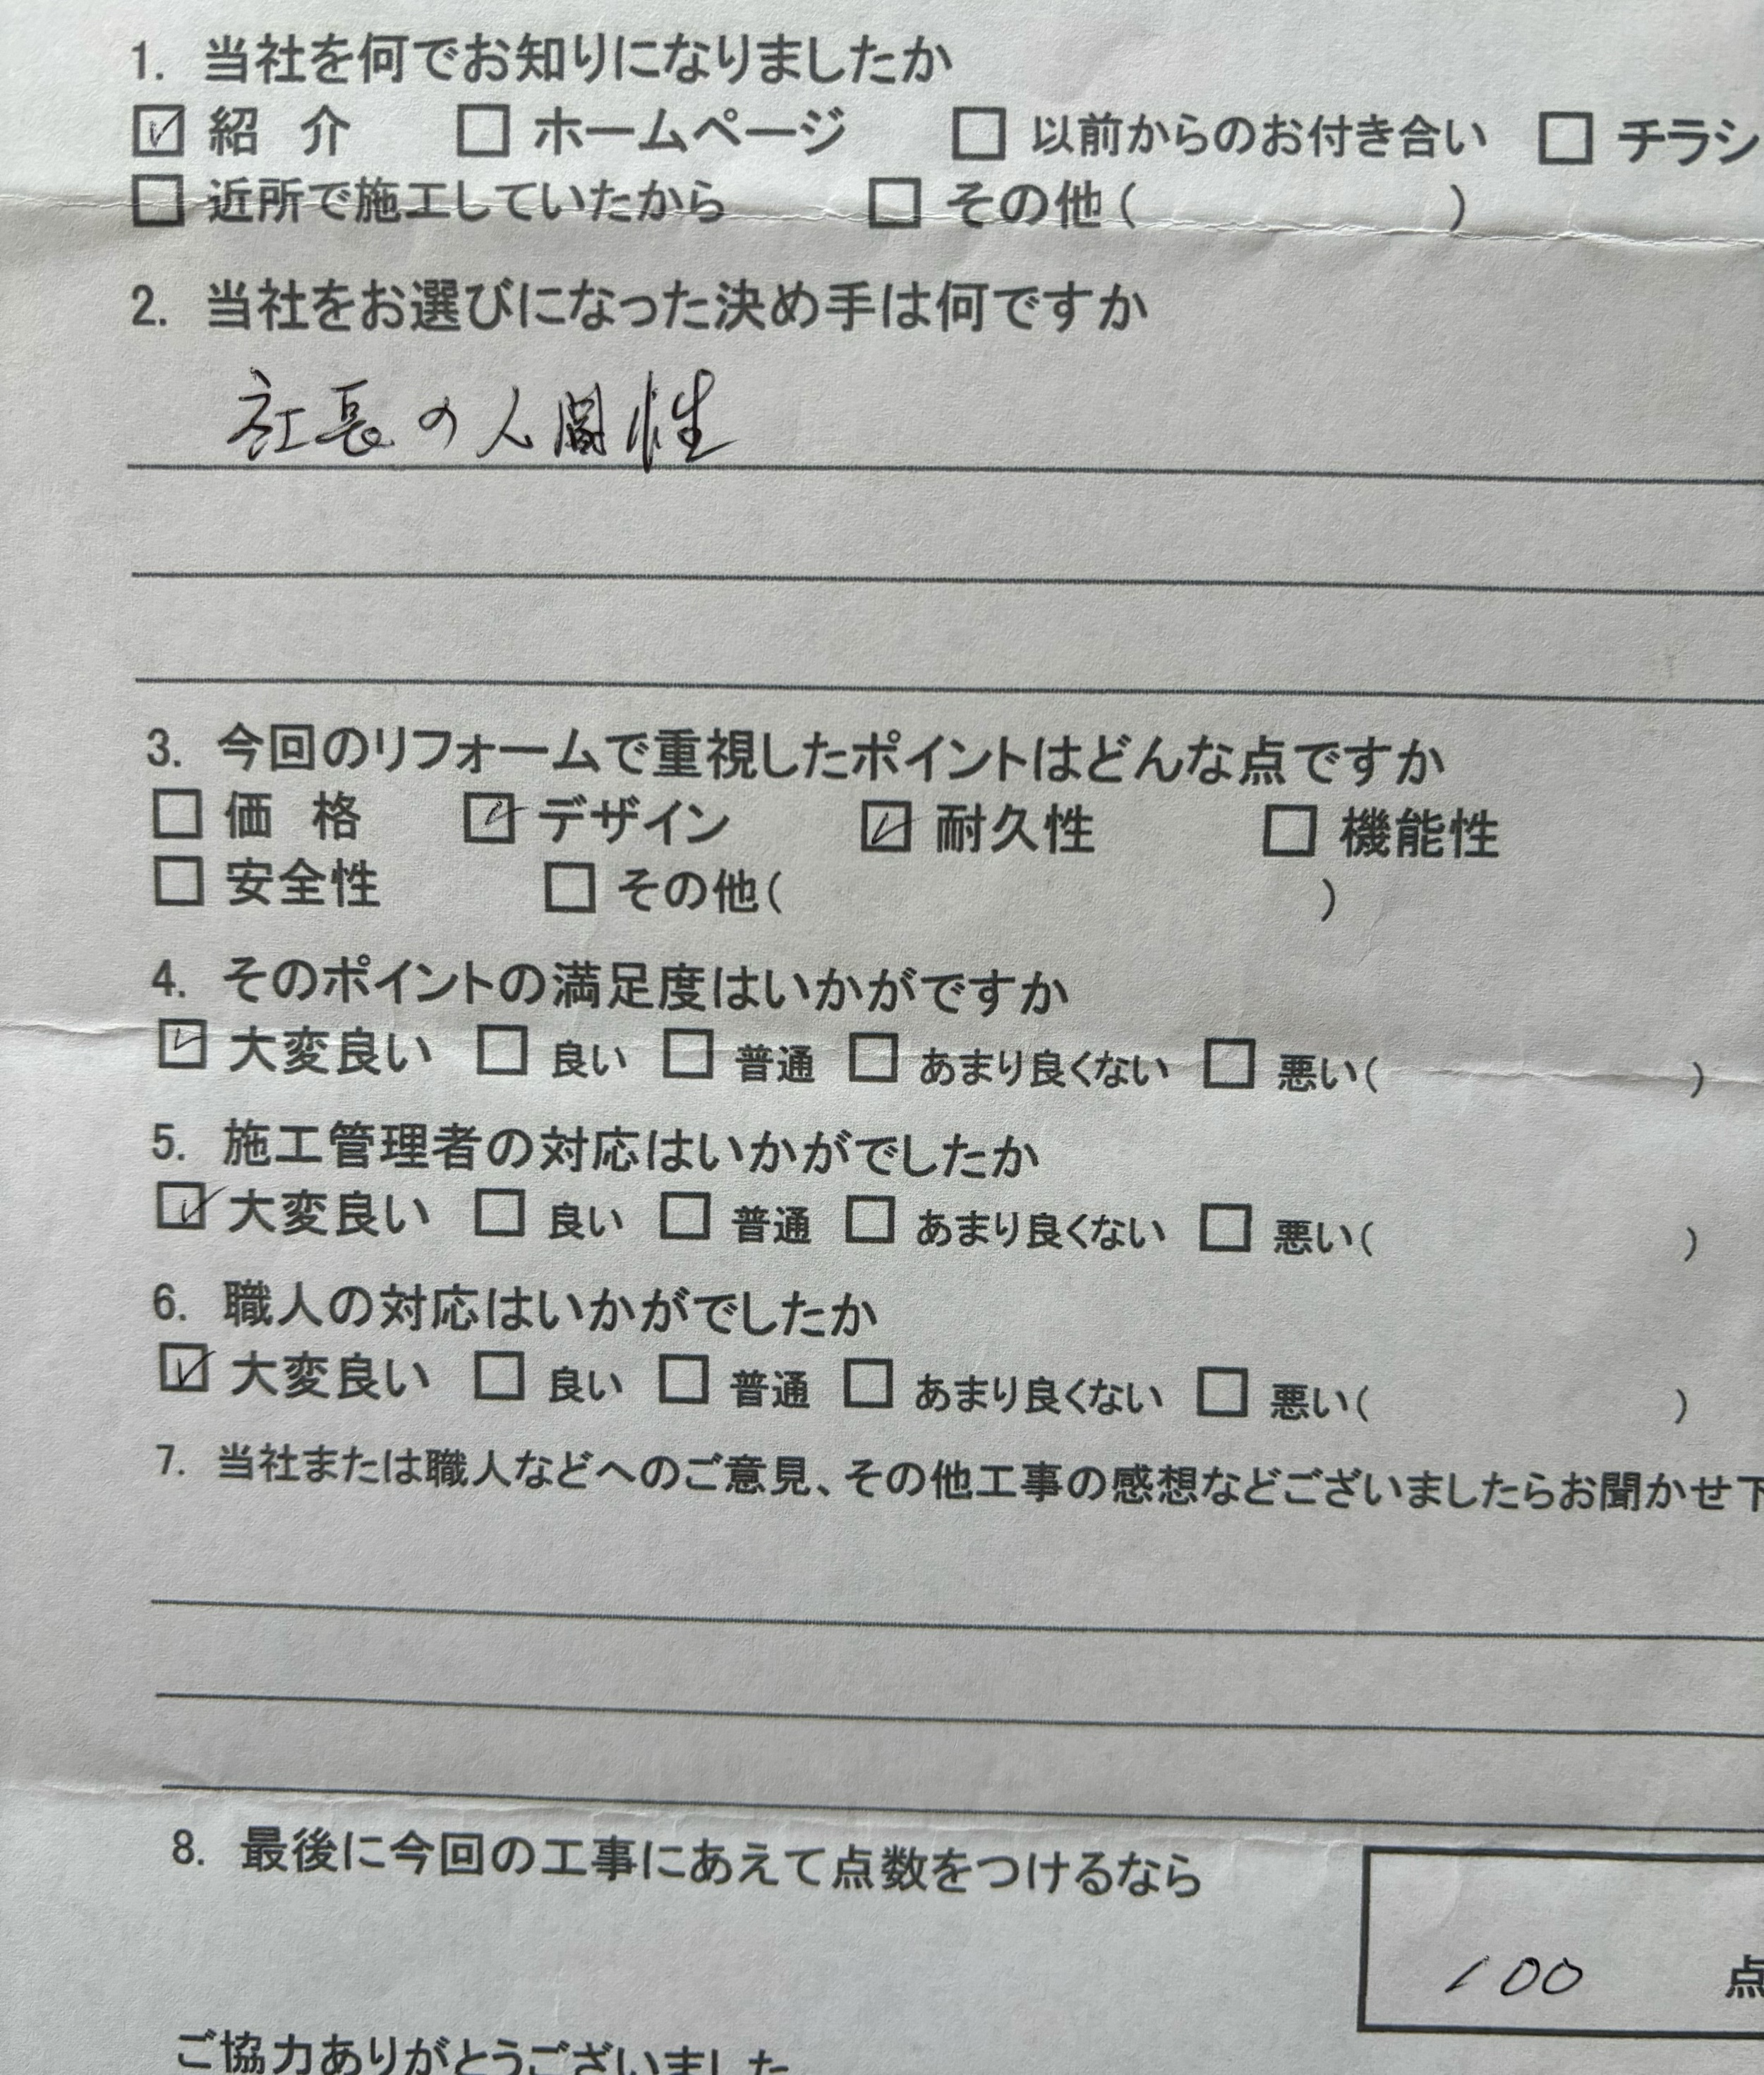 1. 当社を何でお知りになりましたか
☑ 紹 介 ☐ ホームページ ☐ 以前からのお付き合い ☐ チラシ
☐ 近所で施工していたから ☐ その他( )
2. 当社をお選びになった決め手は何ですか
社長の人間性
3. 今回のリフォームで重視したポイントはどんな点ですか
☐ 価 格 ☑ デザイン ☑ 耐久性 ☐ 機能性
☐ 安全性 ☐ その他( )
4. そのポイントの満足度はいかがですか
☑ 大変良い ☐ 良い ☐ 普通 ☐ あまり良くない ☐ 悪い( )
5. 施工管理者の対応はいかがでしたか
☑ 大変良い ☐ 良い ☐ 普通 ☐ あまり良くない ☐ 悪い( )
6. 職人の対応はいかがでしたか
☑ 大変良い ☐ 良い ☐ 普通 ☐ あまり良くない ☐ 悪い( )
7. 当社または職人などへのご意見、その他工事の感想などございましたらお聞かせ下
8. 最後に今回の工事にあえて点数をつけるなら
100 点
ご協力ありがとうございました